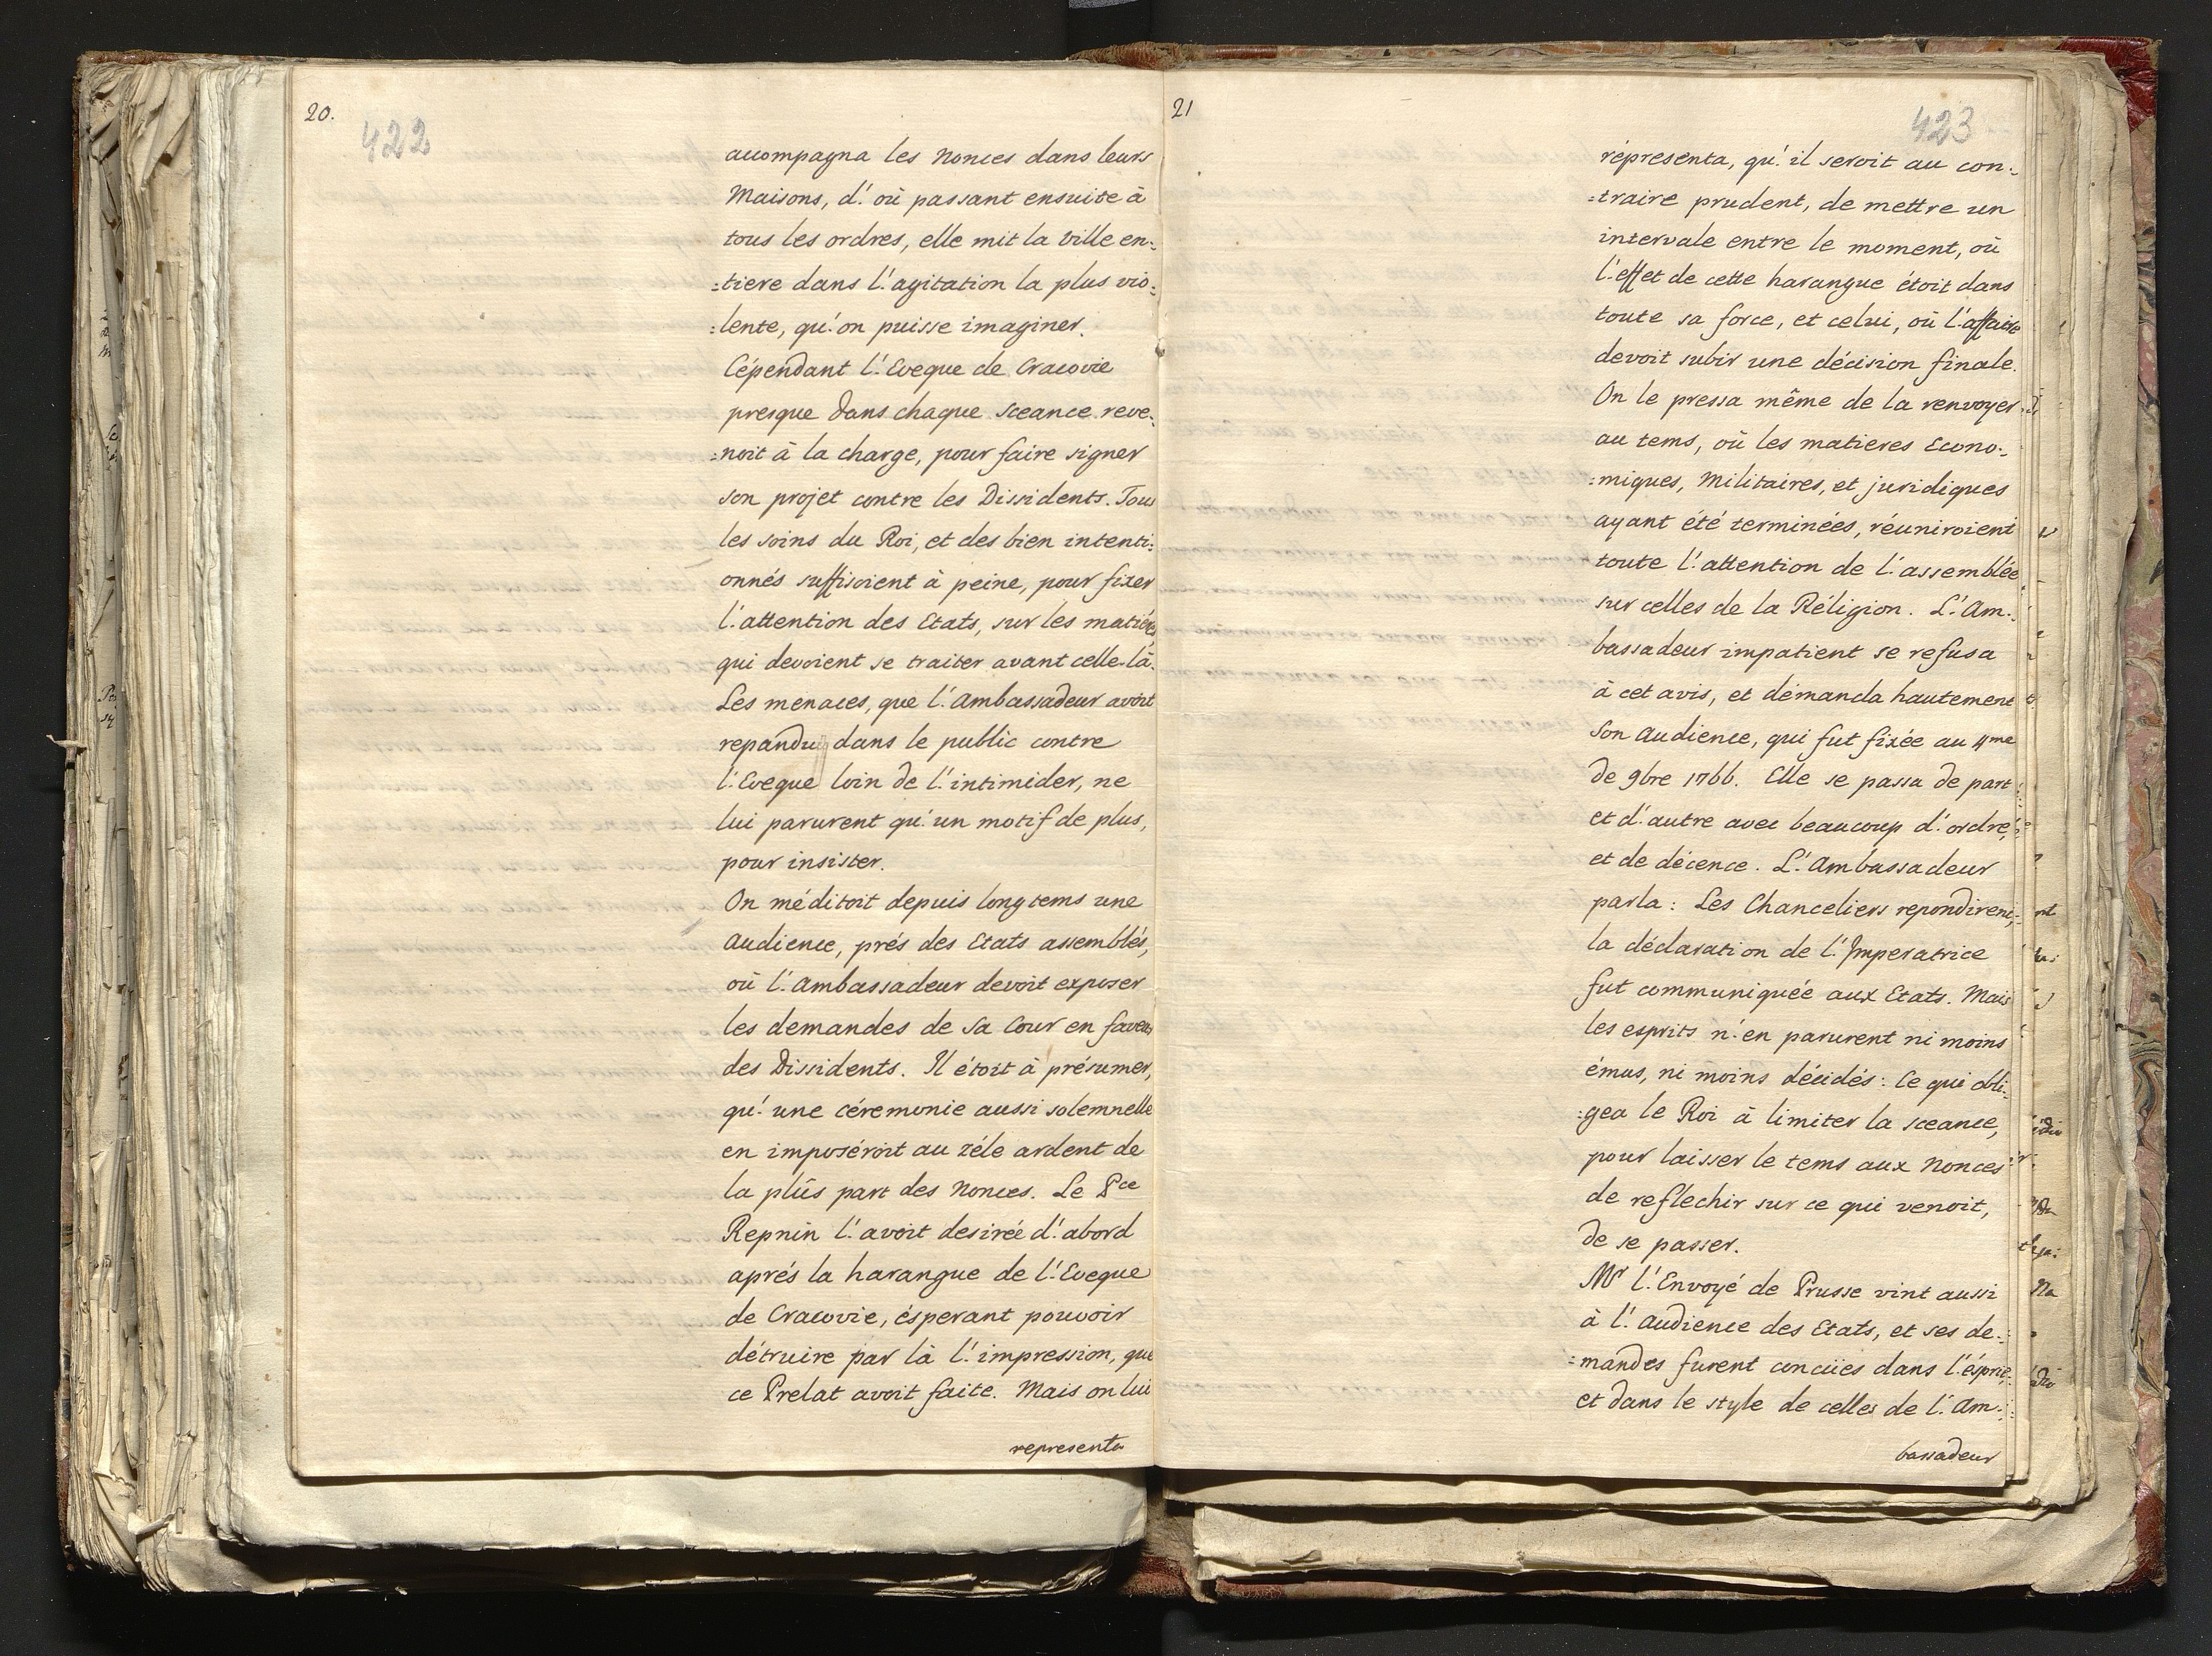 20.
422
accompagna les Nonces dans leurs
Maisons, d'où passant ensuite à
tous les ordres, elle mit la Ville en=
=tiere dans l'agitation la plus vio=
=lente, qu'on puisse imaginer.
Cépendant l'Eveque de Cracovie
presque dans chaque sceance reve=
=noit à la charge, pour faire signer
son projet contre les Dissidents. Tous
les soins du Roi, et des bien intenti=
onnés suffisoient à peine, pour fixer
l'attention des Etats, sur les matiéres
qui devoient se traiter avant celle-là.
Les menaces, que l'Ambassadeur avoit
repandu dans le public contre
l'Eveque loin de l'intimider, ne
lui parurent qu'un motif de plus,
pour insister.
On méditoit depuis longtems une
Audience, prés des Etats assemblés,
où l'Ambassadeur devoit exposer
les demandes de sa Cour en faveur
des Dissidents. Il étoit à présumer,
qu'une céremonie aussi solemnelle
en imposéroit au zéle ardent de
la plûs part des Nonces. Le Pce
Repnin l'avoit desirée d'abord
aprés la harangue de l'Eveque
de Cracovie, ésperant pouvoir
détruire par là l'impression, que
ce Prelat avoit faite. Mais on lui
representa
21
423
répresenta, qu'il seroit au con=
=traire prudent, de mettre un
intervale entre le moment, où
l'effet de cette harangue étoit dans
toute sa force, et celui, où l'affaire
devoit subir une décision finale.
On le pressa même de la renvoyer
au tems, où les matieres Econo=
=miques, Militaires, et juridiques
ayant été terminées, réuniroient
toute l'attention de l'assemblée
sur celles de la Réligion. L'Am=
bassadeur impatient se refusa
à cet avis, et démanda hautement
Son Audience, qui fut fixée au 4me
de 9bre 1766. Elle se passa de part
et d'autre avec beaucoup d'ordre,
et de décence. L'Ambassadeur
parla: Les Chanceliers repondirent,
la déclaration de l'Imperatrice
fut communiquée aux Etats. Mais
les esprits n'en parurent ni moins
émus, ni moins décidés: Ce qui obli=
=gea le Roi à limiter la sceance,
pour laisser le tems aux Nonces
de reflechir sur ce qui venoit,
de se passer.
Mr l'Envoyé de Prusse vint aussi
à l'Audience des Etats, et ses de=
=mandes furent concües dans l'ésprit,
et dans le style de celles de l'Am=
bassadeur